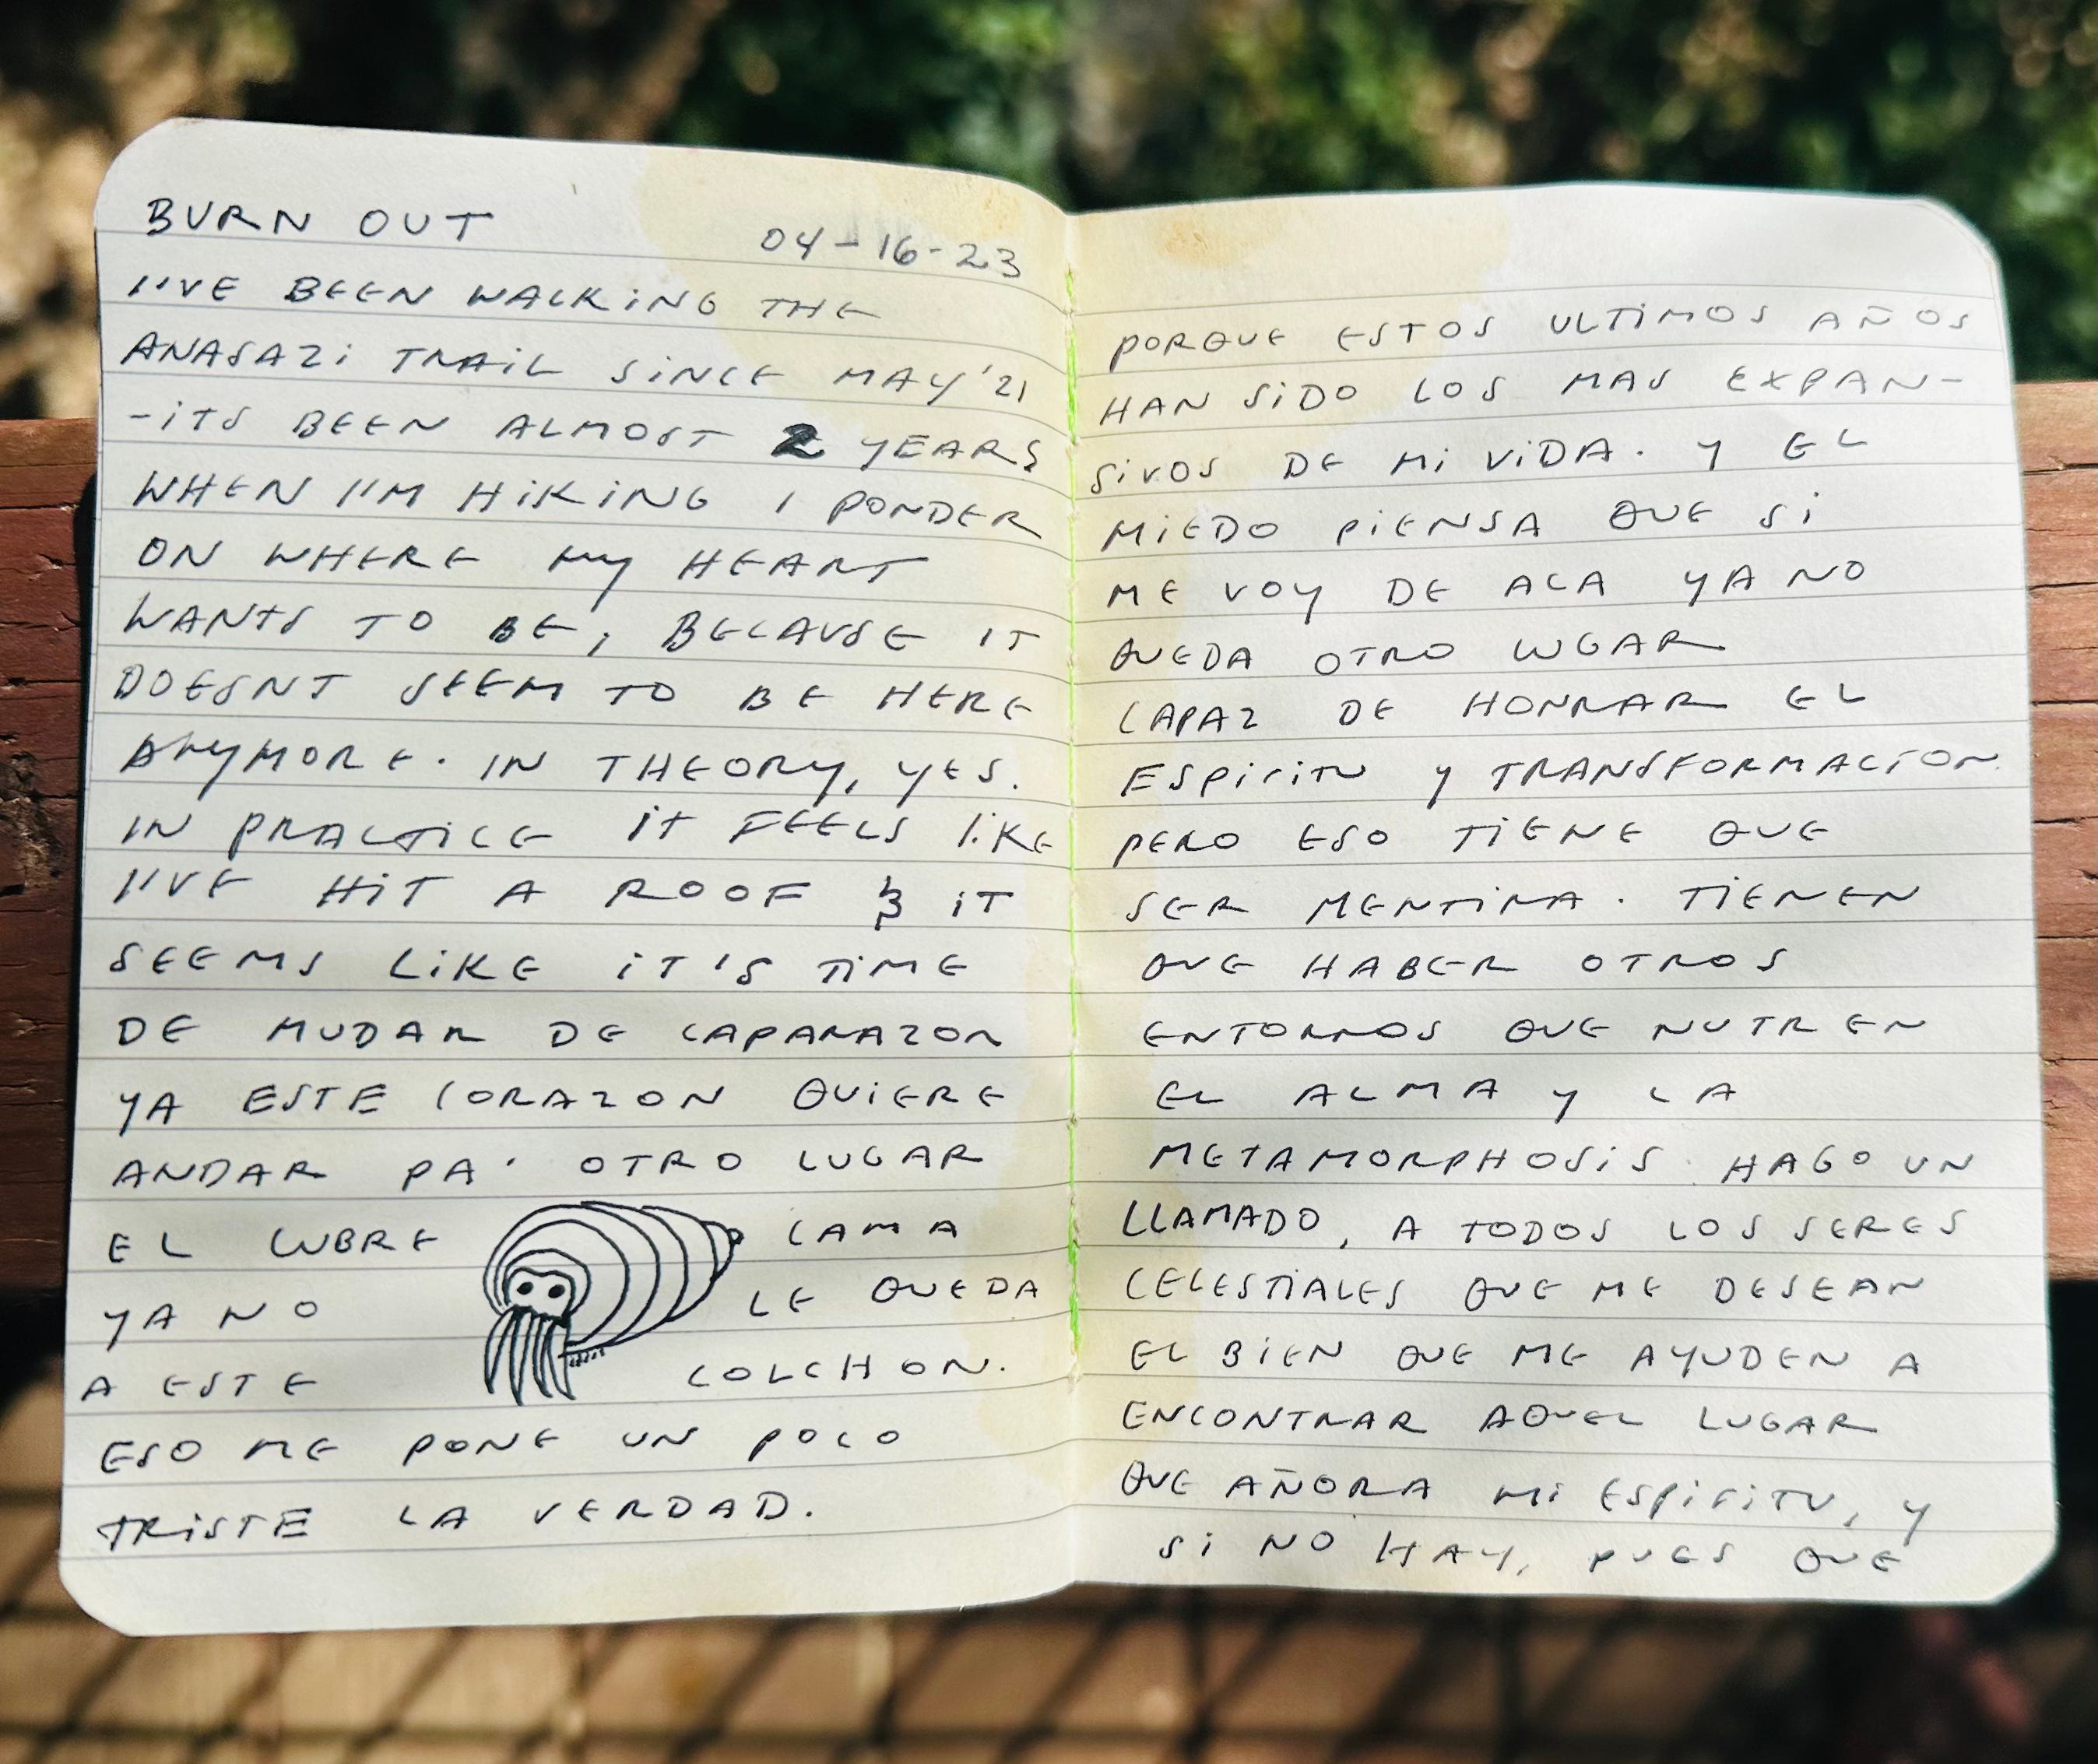 BURN OUT
04-16-23
I'VE BEEN WALKING THE
ANASAZI TRAIL SINCE MAY '21
-ITS BEEN ALMOST 2 YEARS
WHEN I'M HIKING I PONDER
ON WHERE MY HEART
WANTS TO BE, BECAUSE IT
DOESNT SEEM TO BE HERE
ANYMORE. IN THEORY, YES.
IN PRACTICE IT FEELS LIKE
I'VE HIT A ROOF & IT
SEEMS LIKE IT'S TIME
DE MUDAR DE CAPARAZON
YA ESTE CORAZON QUIERE
ANDAR PA' OTRO LUGAR
EL CUBRE CAMA
YA NO LE QUEDA
A ESTE COLCHON.
ESO ME PONE UN POCO
TRISTE LA VERDAD.
PORQUE ESTOS ULTIMOS AÑOS
HAN SIDO LOS MAS EXPAN-
SIVOS DE MI VIDA. Y EL
MIEDO PIENSA QUE SI
ME VOY DE ACA YA NO
QUEDA OTRO LUGAR
CAPAZ DE HONRAR EL
ESPIRITU Y TRANSFORMACION
PERO ESO TIENE QUE
SER MENTIRA. TIENEN
QUE HABER OTROS
ENTORNOS QUE NUTREN
EL ALMA Y LA
METAMORPHOSIS. HAGO UN
LLAMADO, A TODOS LOS SERES
CELESTIALES QUE ME DESEAN
EL BIEN QUE ME AYUDEN A
ENCONTRAR AQUEL LUGAR
QUE AÑORA MI ESPIRITU, Y
SI NO HAY, PUES QUE